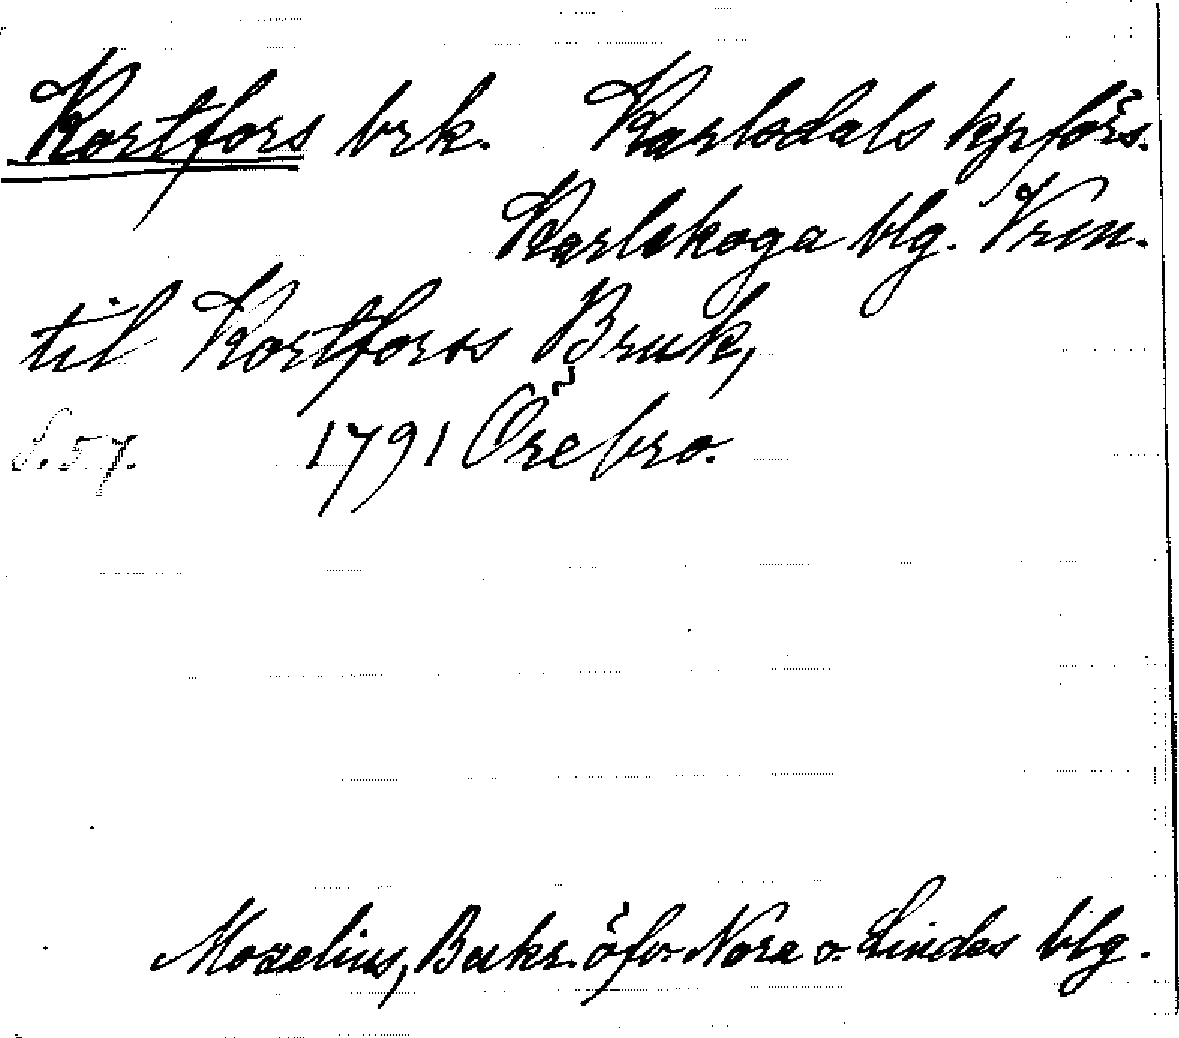 Kortfors brk. Karlsdals kpförs.
Karlskoga blg. Vrm.
til Kortforss Bruk,
S. 57. 1791 Örebro.
Mozelius, Beskr. öfv. Nora o. Lindes blg.